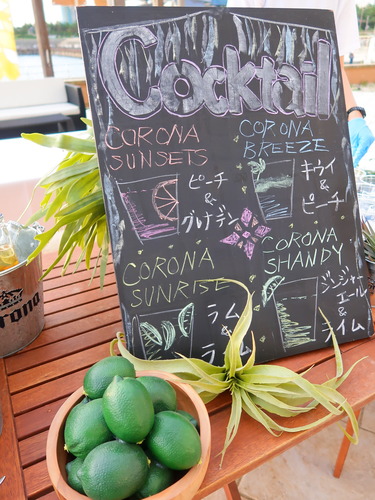 Cocktail
CORONA
SUNSETS
ピーチ
&
グレナデン
CORONA
BREEZE
キウイ
&
ピーチ
CORONA
SUNRISE
ラム
&
CORONA
SHANDY
ジンジャー
エール
&
イム
orona